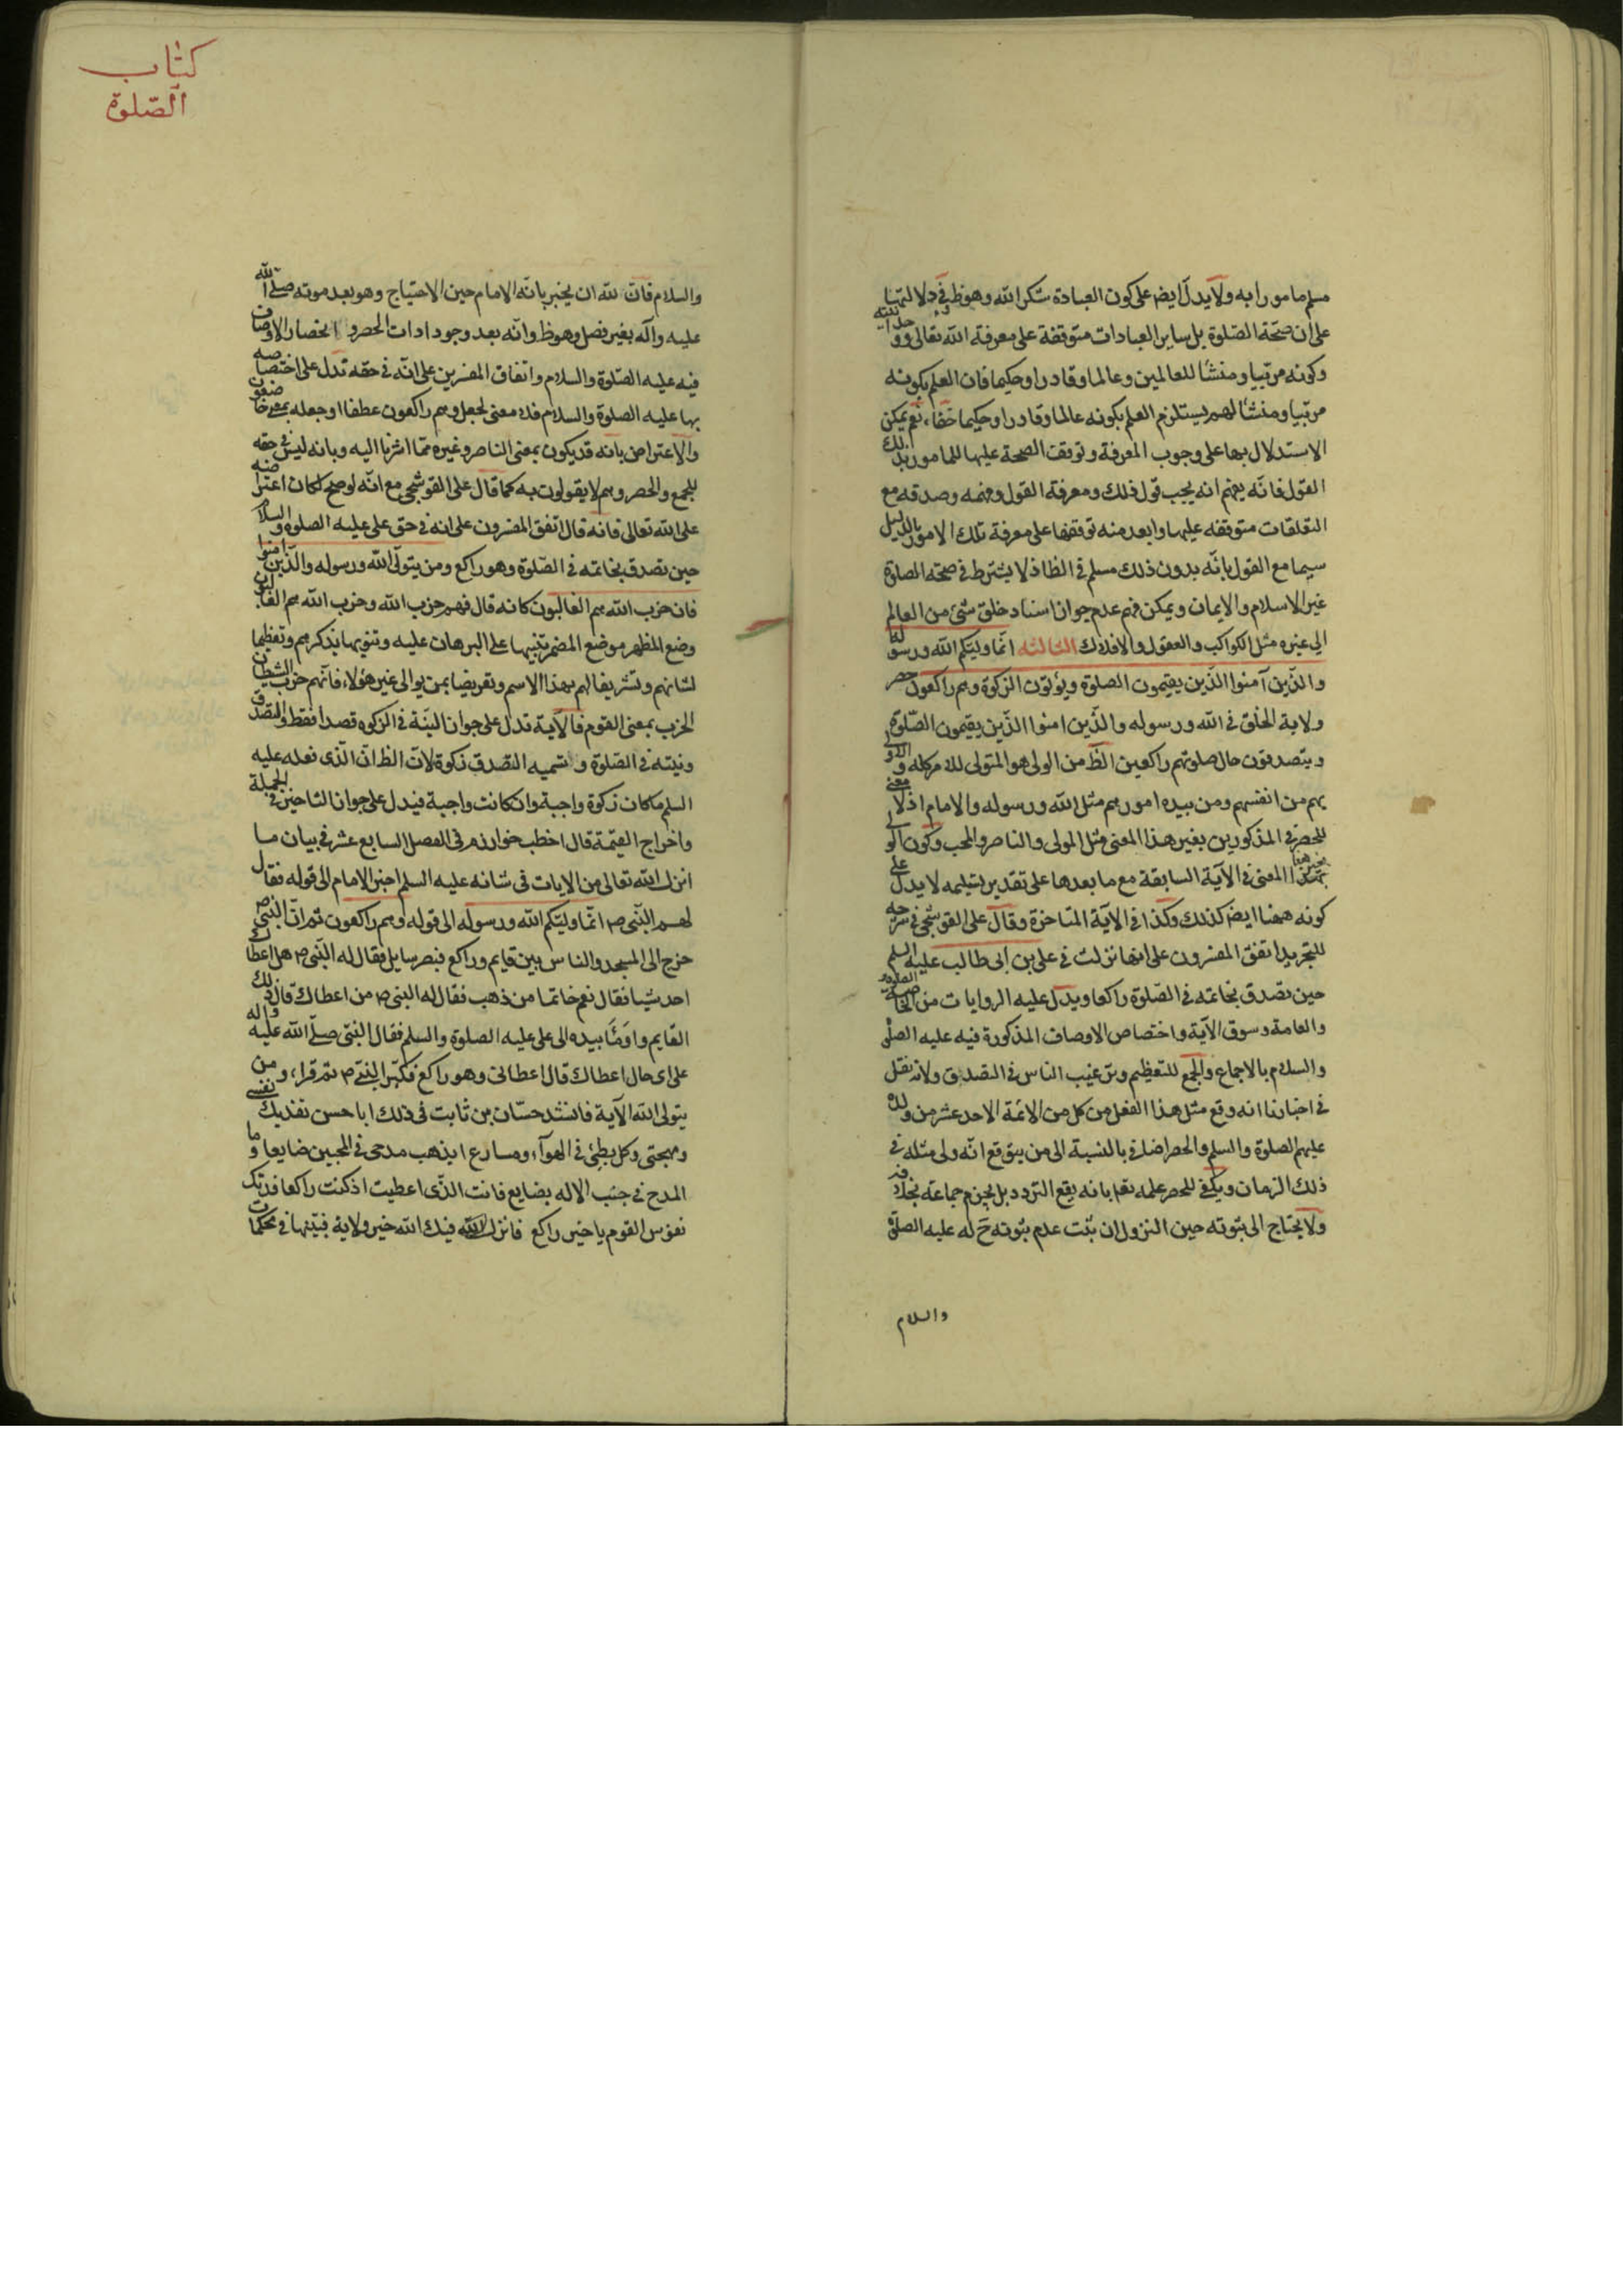 مسلم مامورا به ولا يدل ايض على كون العبادة شكر الله وهو ظ وفى دلالتها
على ان صحة الصلوة بل ساير العبادات متوقفة على معرفة الله تعالى و وحدانيته
وكونه مربيا ومنشأ للعالمين وعالما وقادرا وحكيما فان العلم بكونه
مربيا ومنشأ لهم يستلزم العلم بكونه عالما وقادرا وحكيما خفاء، نعم يمكن
الاستدلال بها على وجوب المعرفة وتوقف الصحة عليها للمامور بذلك
القول فانه يفهم انه يجب قول ذلك ومعرفة القول وفهمه وصدقه مع
التعلقات متوقفه عليها وابعد منه توقفها على معرفة تلك الامور بالدليل
سيما مع القول بانه بدون ذلك مسلم فى الظ اذ لا يشترط فى صحة الصلوة
غير الاسلام والايمان ويمكن فهم عدم جواز اسناد خلق شئ من العالم
الى غيره مثل الكواكب والعقول والافلاك الثالثه انما وليكم الله ورسوله
والذين آمنوا الذين يقيمون الصلوة ويؤتون الزكوة وهم راكعون حصر
ولاية الخلق فى الله ورسوله والذين امنوا الذين يقيمون الصلوة
ويتصدقون حال صلوتهم راكعين الظ من الولى هو المتولى للامر كله والاولى
بهم من انفسهم ومن بيده امورهم مثل الله ورسوله والامام اذ لا معنى
للحصر فى المذكورين بغير هذا المعنى مثل المولى والناصر والمحب وكون الولى
بغير هذا المعنى فى الآية السابقة مع ما بعدها على تقدير تسليمه لا يدل على
كونه ههنا ايض كذلك وكذا فى الآية المتاخرة وقال على القوشجى فى شرحه
للتجريد اتفق المفسرون على انها نزلت فى على بن ابى طالب عليه السلم
حين تصدق بخاتمه فى الصلوة راكعا ويدل عليه الروايات من الخاصة
والعامة وسوق الآية واختصاص الاوصاف المذكورة فيه عليه الصلوة
والسلام بالاجماع والجمع للتعظيم وترغيب الناس فى التصدق ولانه نقل
فى اخبارنا انه وقع مثل هذا الفعل من كل من الائمة الاحد عشر من ولده
عليهم الصلوة والسلم والحصر اضافى بالنسبة الى من يتوقع انه ولى مثله فى
ذلك الزمان ويكفى للحصر علمه تعم بانه يقع التردد بل يجزم جماعة بخلافه
ولا يحتاج الى ثبوته حين النزول ان ثبت عدم ثبوته ح له عليه الصلوة
والسلام
كتاب
الصلوة
والسلام فان لله ان يخبر بانه الامام حين الاحتياج وهو بعد موته صلى الله
عليه وآله بغير فصل وهو ظ وانه بعد وجود ادات الحصر و انحصار الاوصاف
فيه عليه الصلوة والسلام واتفاق المفسرين على انه فى حقه تدل على اختصاصه
بها عليه الصلوة والسلام فلا معنى لجعل وهم راكعون عطفا او جعله بمعنى خاضعون
والاعتراض بانه قد يكون بمعنى الناصر وغيره مما اشرنا اليه وبانه ليس فى حقه
للجمع والحصر وهم لا يقولون به كما قال على القوشجى مع انه لو صح لكان اعتراضه
على الله تعالى فانه قال اتفق المفسرون على انه فى حق على عليه الصلوة والسلام
حين تصدق بخاتمه فى الصلوة وهو راكع ومن يتولى الله ورسوله والذين امنوا
فان حزب الله هم الغالبون كانه قال فهم حزب الله وحزب الله هم الغالبون
وضع المظهر موضع المضمر تنبيها على البرهان عليه وتنويها بذكرهم وتعظيما
لشانهم وتشريفا لهم بهذا الاسم وتعريضا بمن يوالى غير هؤلاء، فانهم حزب الشيطان
الحزب بمعنى القوم فالآية تدل على جواز النية فى الزكوه قصدا فقط والتصدق
ونيته فى الصلوة وتسميه التصدق زكوة لان الظ ان الذى فعله عليه
السلم ما كان زكوة واجبة وان كانت واجبة فيدل على جواز التاخير فى الجملة
واخراج القيمة قال اخطب خوارزم فى الفصل السابع عشر فى بيان ما
انزل الله تعالى من الايات فى شانه عليه السلم اخبر الامام الى قوله فقال
لهم النبى ص انما وليكم الله ورسوله الى قوله وهم راكعون ثم ان النبى ص
خرج الى المسجد والناس بين قايم وراكع فبصر سايل فقال له النبى ص هل اعطاك
احد شيئا فقال نعم خاتما من ذهب فقال له النبى ص من اعطاك قال ذلك
القايم واومأ بيده الى على عليه الصلوة والسلم فقال النبى صلى الله عليه واله
على اى حال اعطاك قال اعطانى وهو راكع فكبر النبى ص ثم قرا، ومن
يتولى الله الآية فانشد حسان بن ثابت فى ذلك ابا حسن تفديك نفسى
ومهجتى وكل بطئ فى الهوآ، ومسارع ايذهب مدحى فى المحبين ضايعا وما
المدح فى جنب الاله بضايع فانت الذى اعطيت اذ كنت راكعا فدتك
نفوس القوم يا خير راكع فانزل الله فيك الله خير ولاية فبينها فى محكمات